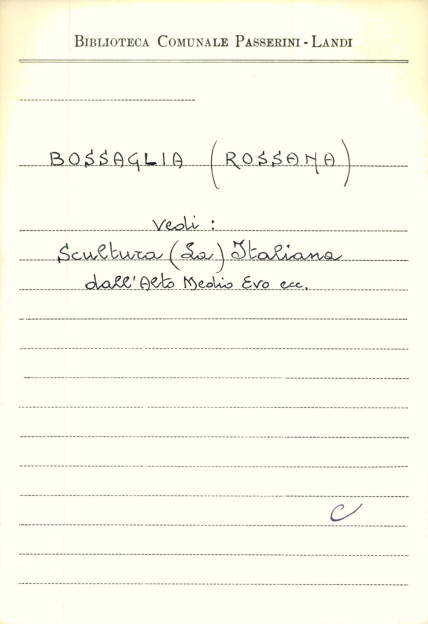 BIBLIOTECA COMUNALE PASSERINI-LANDI
BOSSAGLIA (ROSSANA)
vedi :
Scultura (La) Italiana
dall'Alto Medio Evo ecc.
C